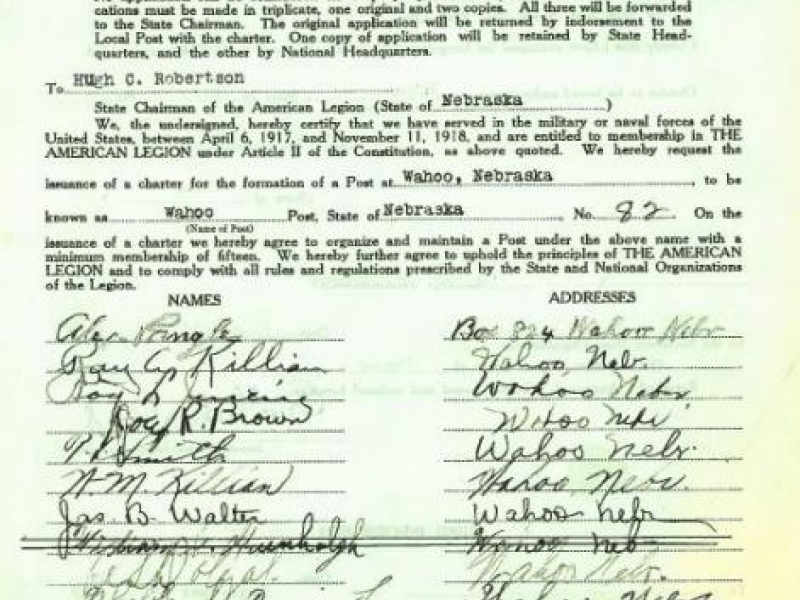 cations must be made in triplicate, one original and two copies. All three will be forwarded
to the State Chairman. The original application will be returned by indorsement to the
Local Post with the charter. One copy of application will be retained by State Head-
quarters, and the other by National Headquarters.
To Hugh C. Robertson
State Chairman of the American Legion (State of Nebraska)
We, the undersigned, hereby certify that we have served in the military or naval forces of the
United States, between April 6, 1917, and November 11, 1918, and are entitled to membership in THE
AMERICAN LEGION under Article II of the Constitution, as above quoted. We hereby request the
issuance of a charter for the formation of a Post at Wahoo, Nebraska, to be
known as Wahoo Post, State of Nebraska, No. 82 On the
(Name of Post)
issuance of a charter we hereby agree to organize and maintain a Post under the above name with a
minimum membership of fifteen. We hereby further agree to uphold the principles of THE AMERICAN
LEGION and to comply with all rules and regulations prescribed by the State and National Organizations
of the Legion.
NAMES ADDRESSES
Alex Pringle Box 824 Wahoo Nebr
Ray C. Killian Wahoo, Nebr.
Roy L. Wahoo Nebr
Roy R. Brown Wahoo Nebr
Smith Wahoo Nebr.
W. M. Killian Wahoo, Nebr.
Jas. B. Walter Wahoo Nebr
William Wahoo Neb
Wahoo Nebr.
Wahoo Nebr